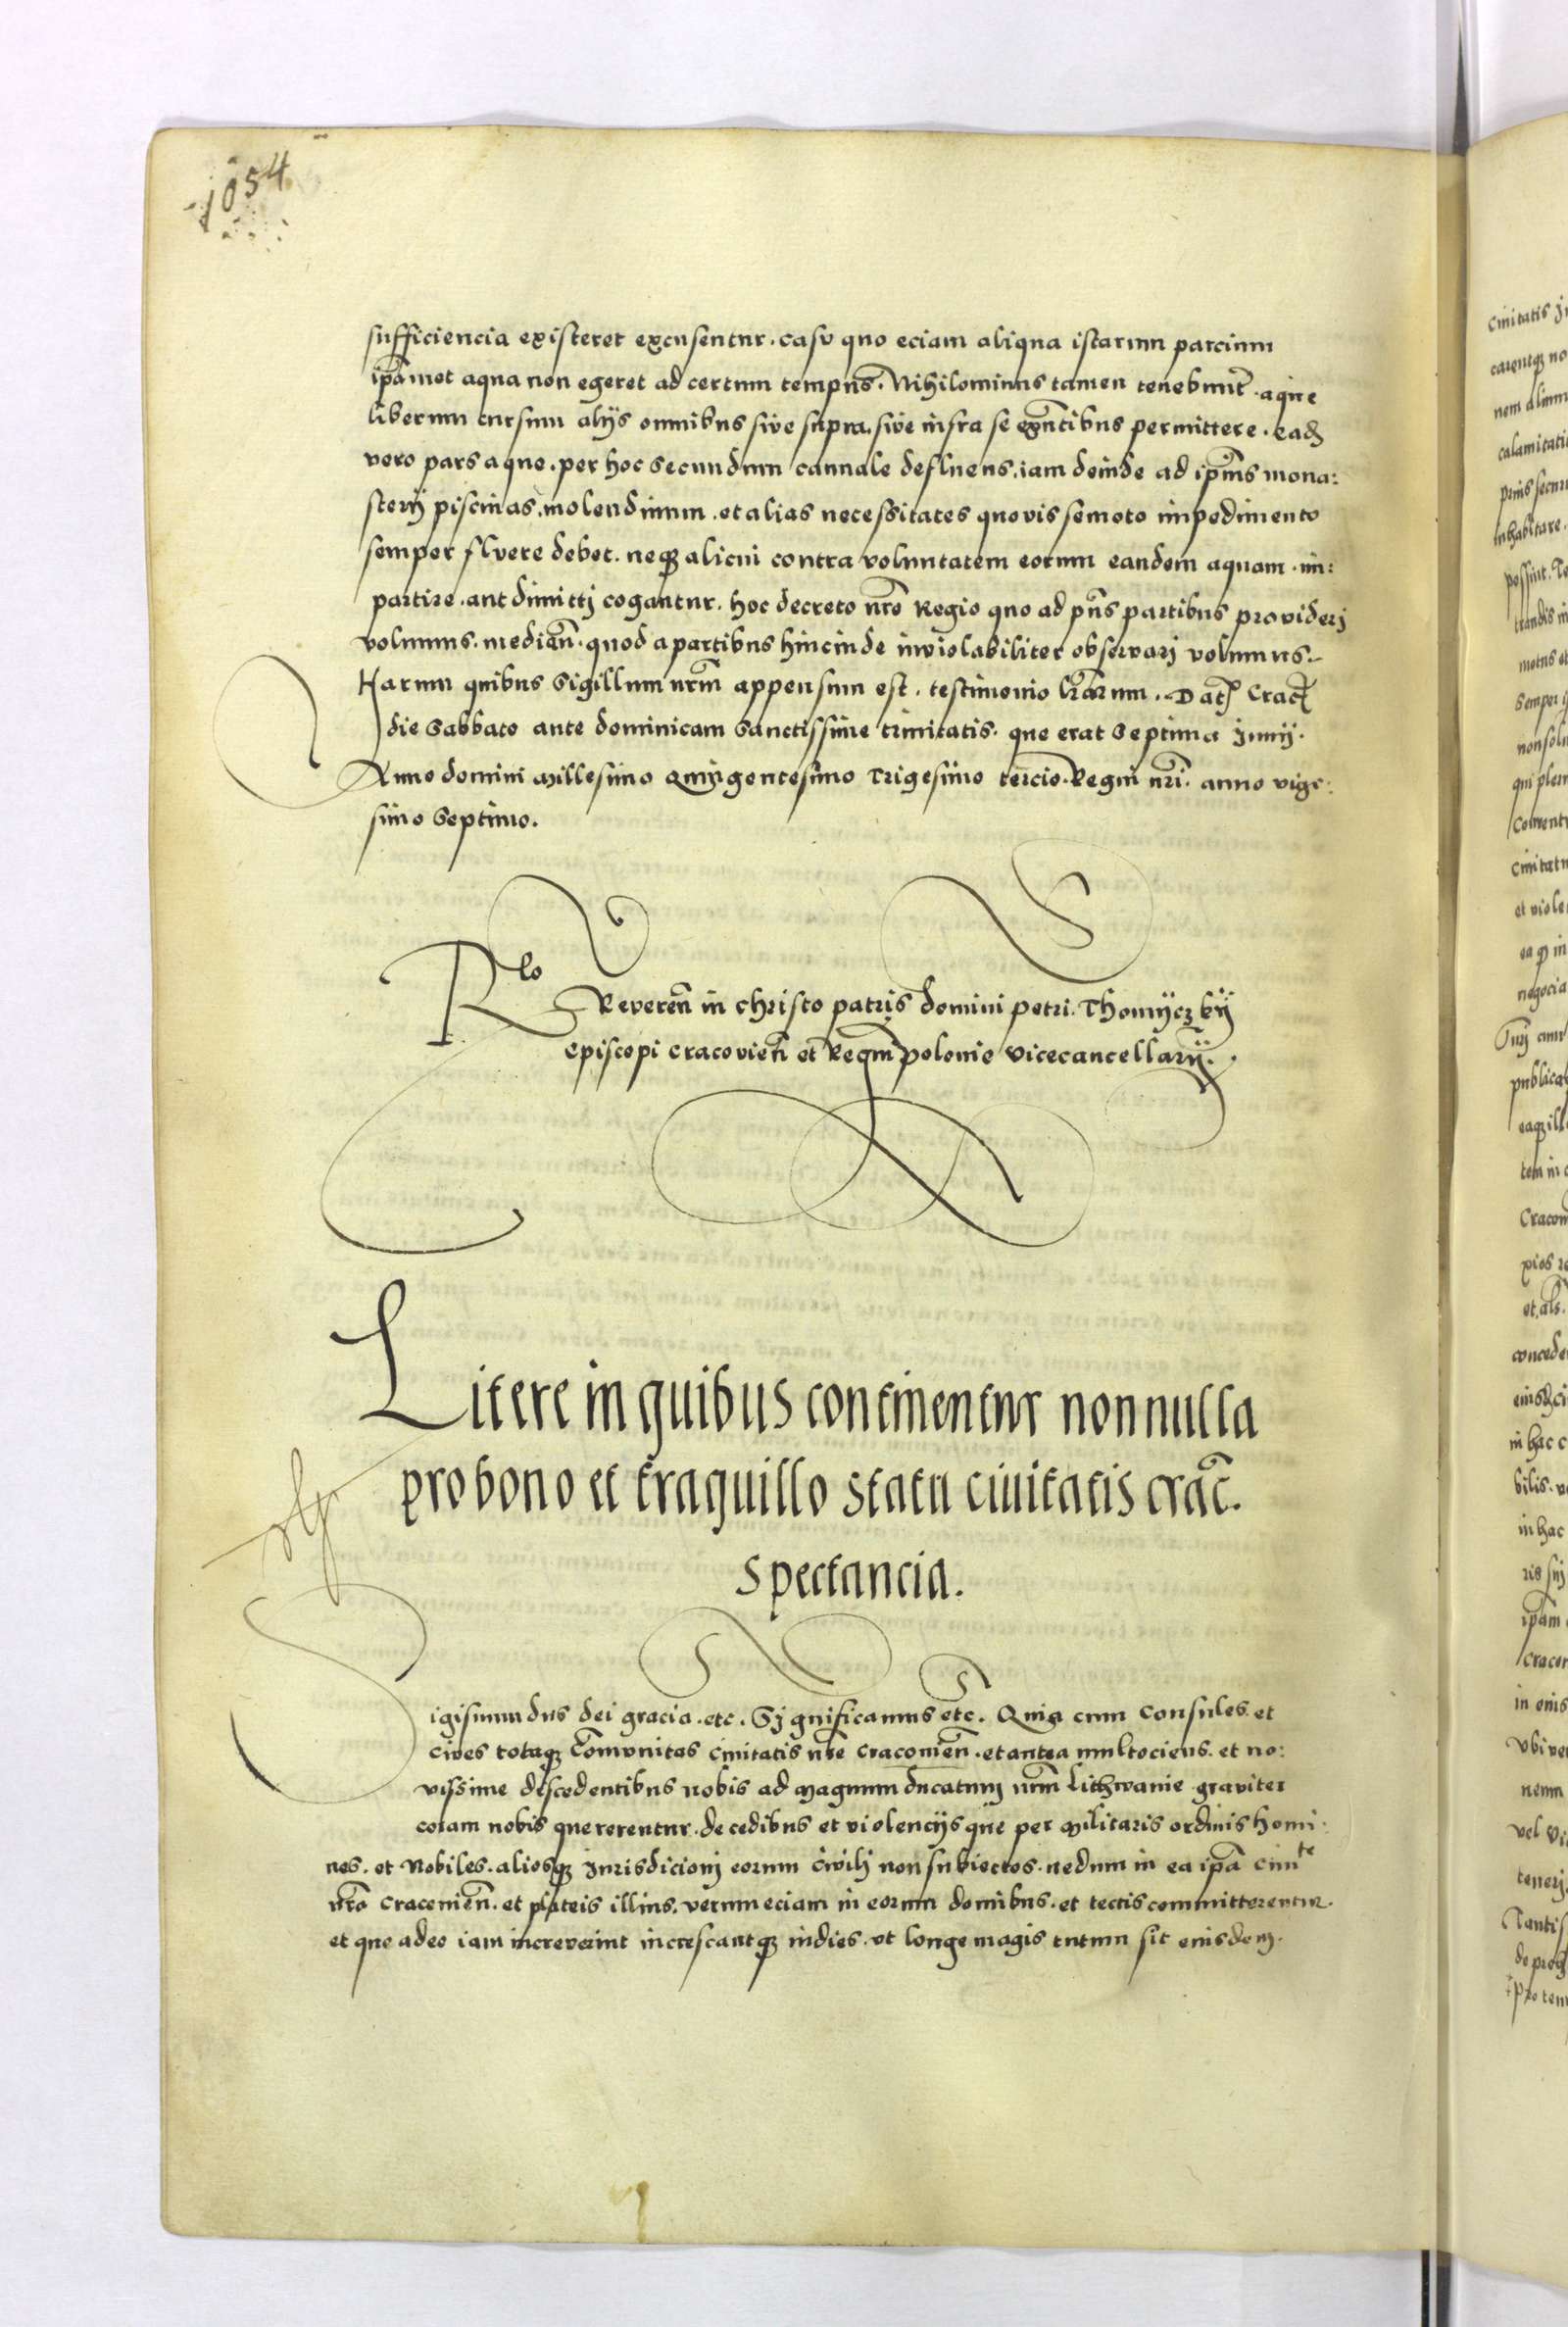 1054
sufficiencia existeret excusentur. casu quo eciam aliqua istarum parcium
ip̃amet aqua non egeret ad certum tempus. Nihilominus tamen tenebunt̃. aque
liberum cursum alijs omnibus sive supra. sive infra se exñtibus permittere. ead̃
vero pars aque. per hoc secundum cannale defluens. iam deinde ad ip̃ius mona:
sterij piscinas. molendinum. et alias necessitates quovis semoto impedimento
semper fluere debet. neq₃ alicui contra voluntatem eorum eandem aquam. im:
partire. aut dimittj cogantur. hoc decreto nr̃o Regio quo ad pñs partibus providerj
volumus. median̄. quod a partibus hincinde inviolabiliter observarj volumus.
Harum quibus Sigillum nrm̃ appensum est. testimonio lr̃arum. Dat̃ Crac̃
die Sabbato ante dominicam Sanctissime trinitatis. que erat Septima Junij.
Anno domini Millesimo Quingentesimo Trigesimo tercio. Regni nr̃i. anno vige:
simo Septimo.
Rlo Reveren̄ in christo patris domini petri. Thomÿcz kÿ
Episcopi cracovien̄ et Regni polonie Vicecancellarÿ.
Litere in quibus continentur nonnulla
pro bono et traquillo statu civitatis crac̃.
Spectancia.
Sigismundus dei gracia. etc. Sj gnificamus etc̃. Quia cum Consules. et
cives totaq₃ Com̃vnitas Civitatis nr̃e Cracovien̄. et antea multociens. et no:
vissime discedentibus nobis ad Magnum ducatum nrm̃ Lithwanie graviter
coram nobis quererentur. de cedibus et violencijs que per Militaris ordinis homi:
nes. et Nobiles. aliosq₃ Jurisdicionj eorum Civilj non subiectos. nedum in ea ip̃a Civite
nr̃a Cracovien̄. et plateis illius. verum eciam in eorum domibus. et tectis committerentur.
et que adeo iam increverint increscantq₃ indies. ut longe magis tutum sit eiusdem.